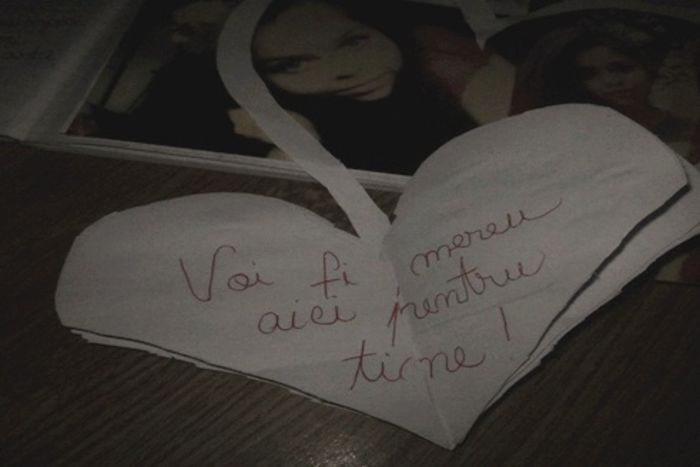 Voi fi mereu
aici pentru
tine!